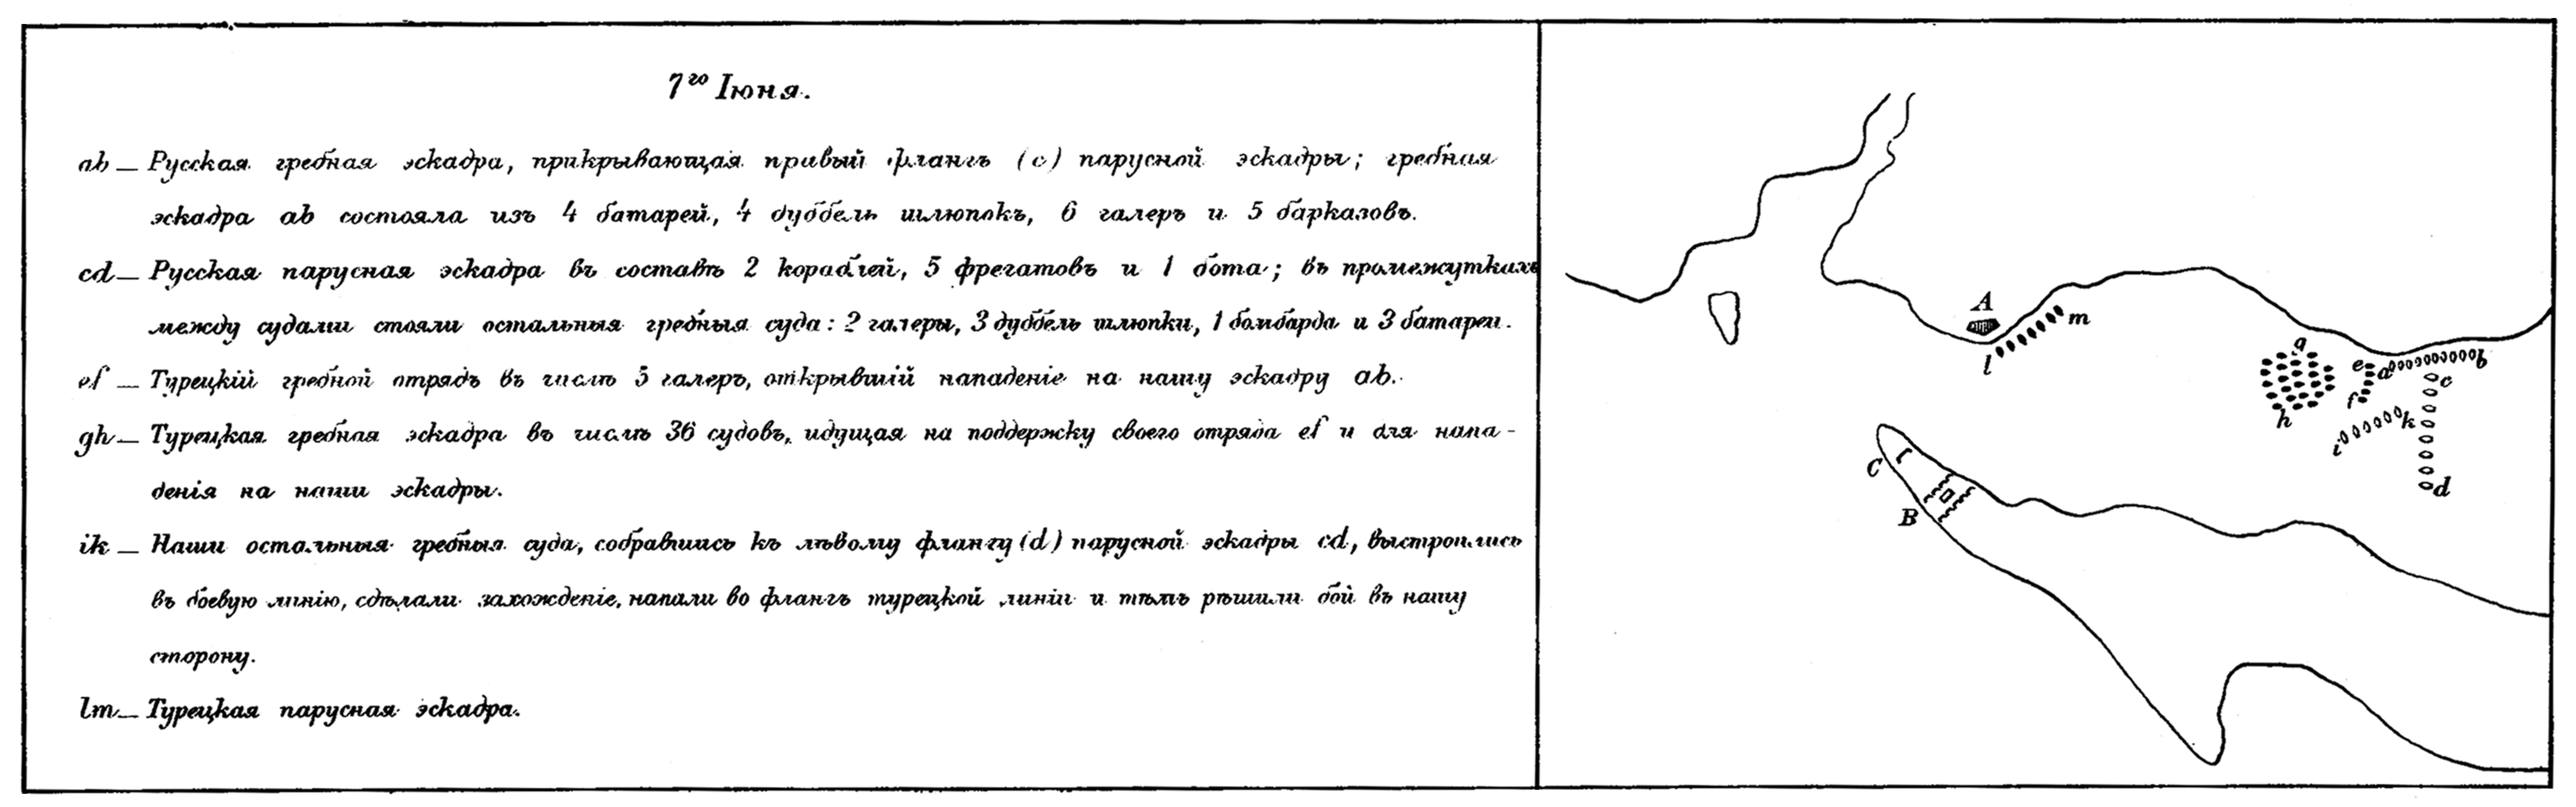 7го Iюня.
ab — Русская гребная эскадра, прикрывающая правый флангъ (c) парусной эскадры; гребная
эскадра ab состояла изъ 4 батарей, 4 дуббель шлюпокъ, 6 галеръ и 5 барказовъ.
cd — Русская парусная эскадра въ составѣ 2 кораблей, 5 фрегатовъ и 1 бота; въ промежуткахъ
между судами стояли остальныя гребныя суда: 2 галеры, 3 дуббель шлюпки, 1 бомбарда и 3 батареи.
ef — Турецкiй гребной отрядъ въ числѣ 5 галеръ, открывшiй нападенiе на нашу эскадру ab.
gh — Турецкая гребная эскадра въ числѣ 36 судовъ, идущая на поддержку своего отряда ef и для напа-
денiя на наши эскадры.
ik — Наши остальныя гребныя суда, собравшись къ лѣвому флангу (d) парусной эскадры cd, выстроились
въ боевую линiю, сдѣлали захожденiе, напали во флангъ турецкой линiи и тѣмъ рѣшили бой въ нашу
сторону.
lm — Турецкая парусная эскадра.
A
m
l
g
e
a
b
c
f
h
k
i
d
C
B